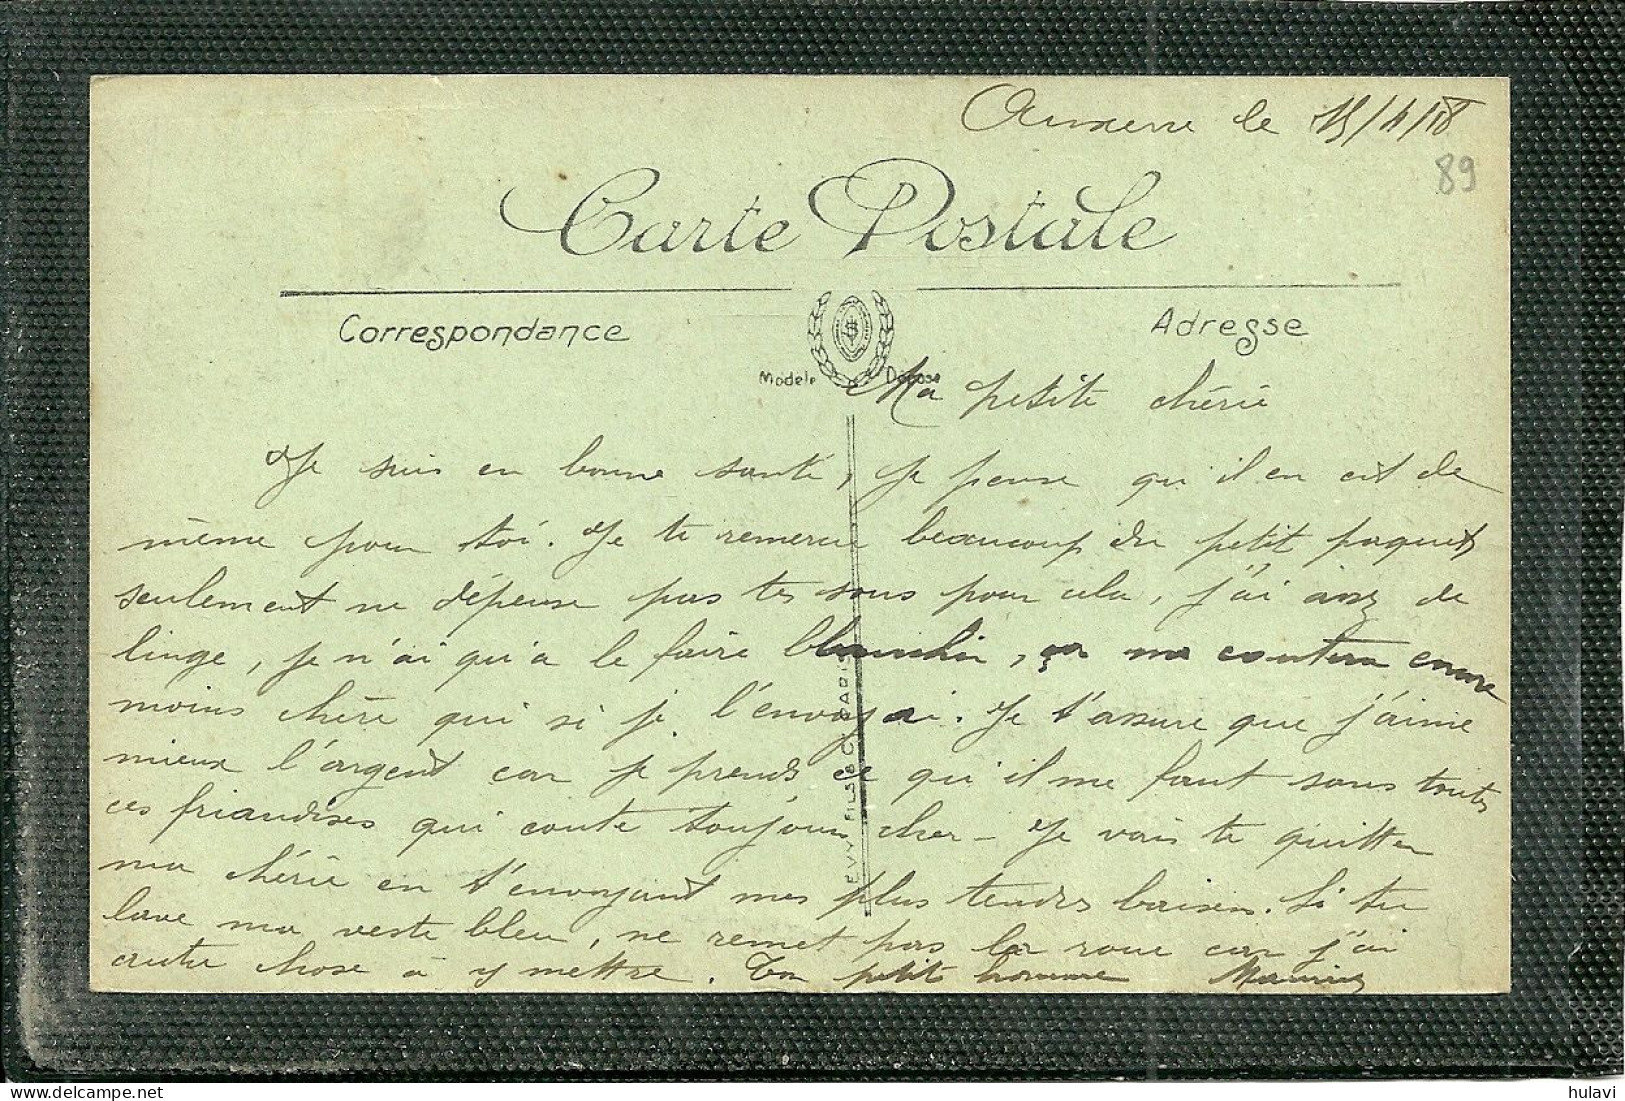 Auxerre le 15/4/18
89
Carte Postale
Correspondance
Adresse
Modele Déposé
Ma petite chérie
Je suis en bonne santé, je pense qu'il en est de
même pour toi. Je te remercie beaucoup du petit paquet
seulement ne dépense pas tes sous pour cela, j'ai assez de
linge, je n'ai qu'a le faire blanchir, ça me coutera encore
moins chère qui si je l'envoyai. Je t'assure que j'aime
mieux l'argent car je prends ce qu'il me faut sans toutes
ces friandises qui coute toujours cher - Je vais te quitter
ma chérie en t'envoyant mes plus tendres baisers. Si tu
lave ma veste bleu, ne remet pas la roue car j'ai
autre chose à y mettre. Ton petit homme Maurice
LEVY FILS & C. PARIS
hulavi